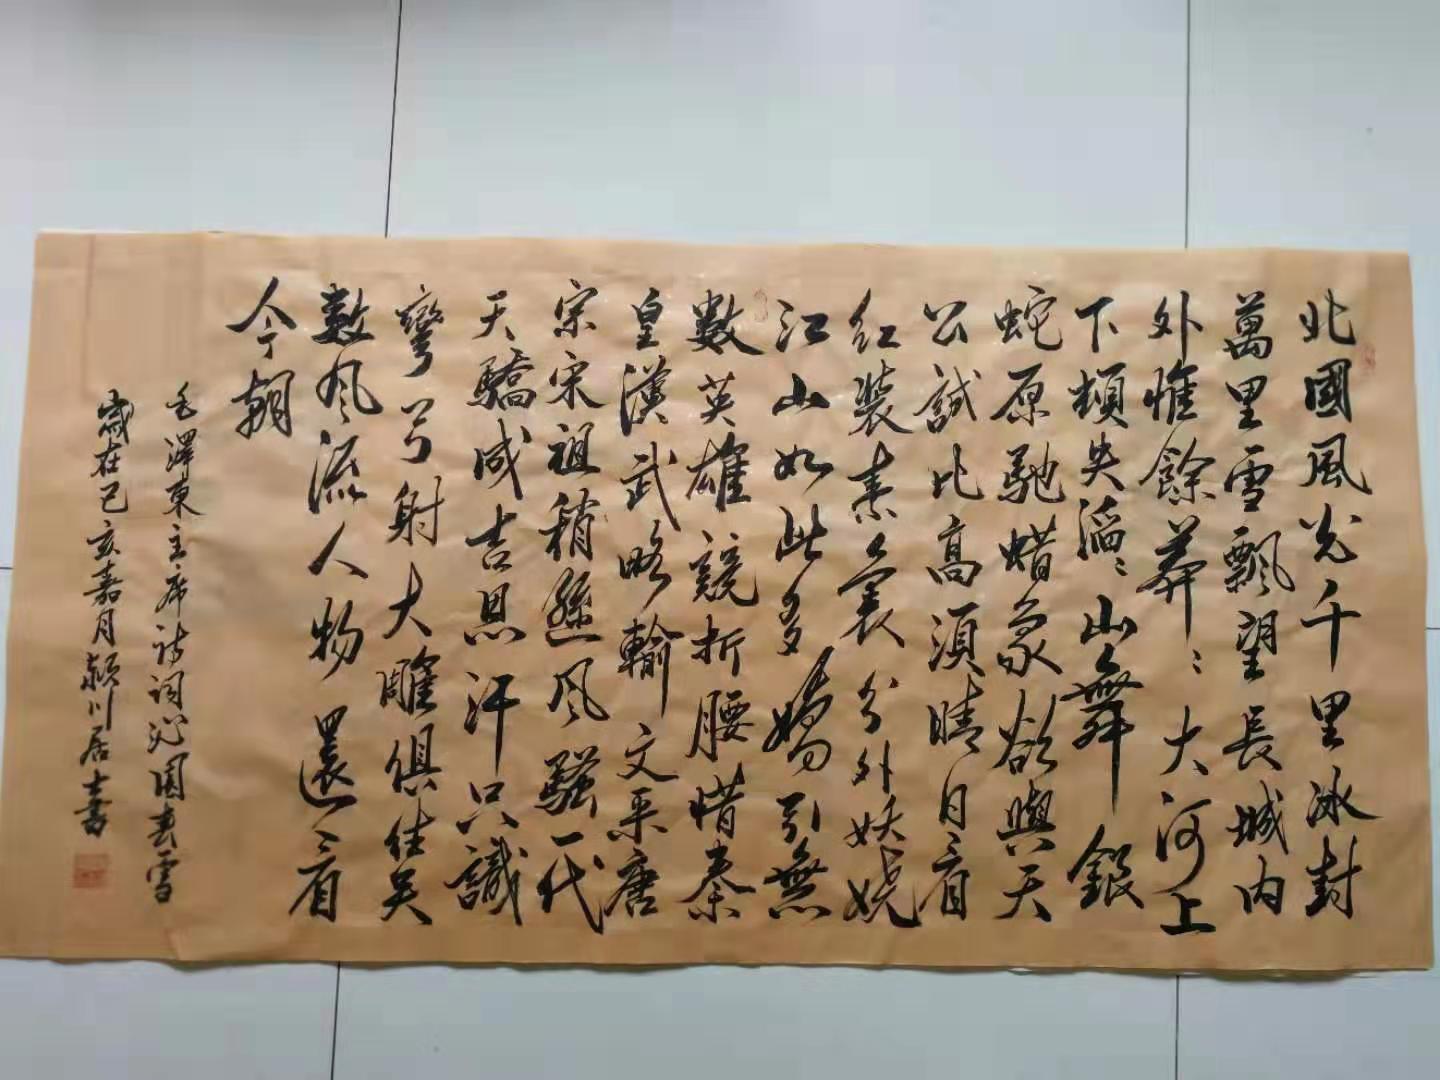 北國風光千里冰封
萬里雪飄望長城内
外惟餘莽〻大河上
下頓失滔〻山舞銀
蛇原馳蜡象欲與天
公試比高須晴日看
红裝素裹分外妖娆
江山如此多嬌引無
數英雄競折腰惜秦
皇漢武略輸文采唐
宗宋祖稍遜风騷一代
天驕成吉思汗只識
彎弓射大雕俱往矣
數风流人物還看
今朝
毛澤東主席诗词沁園春雪
歲在己亥嘉月颍川居士書